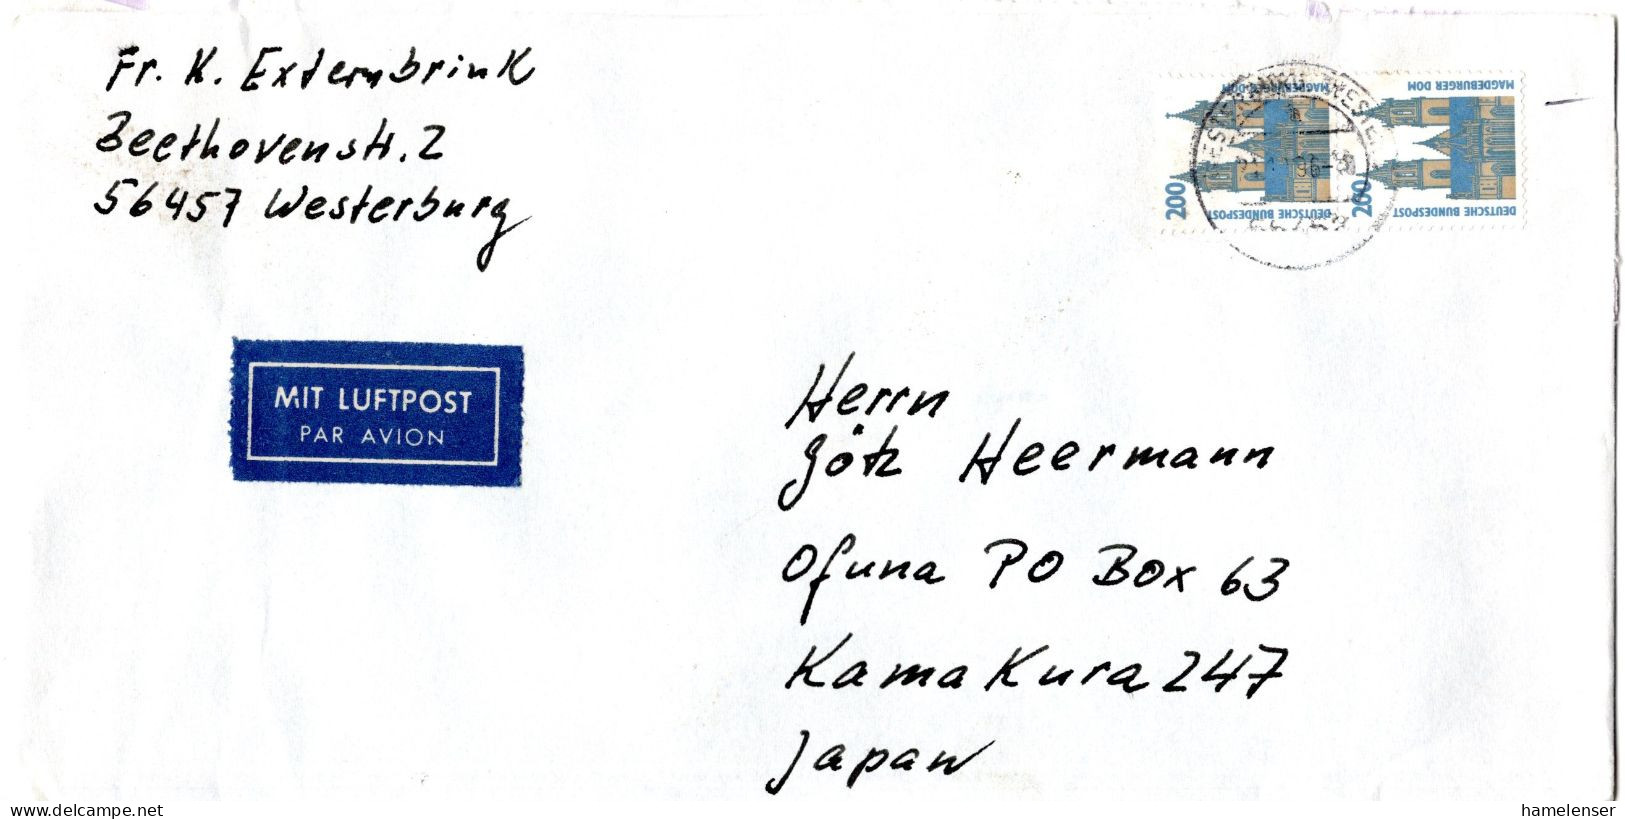 Fr. K. Externbrink
Beethovenstr. 2
56457 Westerburg
MAGDEBURGER DOM
MAGDEBURGER DOM
200
200
DEUTSCHE BUNDESPOST
DEUTSCHE BUNDESPOST
MIT LUFTPOST
PAR AVION
Herrn
Götz Heermann
Ofuna PO Box 63
Kamakura 247
Japan
www.delcampe.net
hamelenser